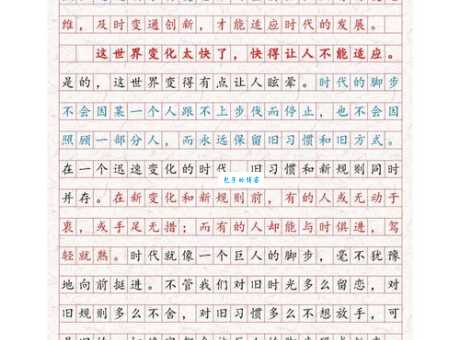 维，及时变通创新，才能适应时代的发展。
这世界变化太快了，快得让人不能适应。
是的，这世界变得有点让人眩晕。时代的脚步
不会因某一个人跟不上步伐而停止，也不会因
照顾一部分人，而永远保留旧习惯和旧方式。
在一个迅速变化的时代，旧习惯和新规则同时
并存。在新变化和新规则前，有的人或无动于
衷，或手足无措；而有的人却能与时俱进，驾
轻就熟。时代就像一个巨人的脚步，毫不犹豫
地向前挺进。不管我们对旧时光多么留恋，对
旧规则多么不舍，对旧习惯多么不想放手，可